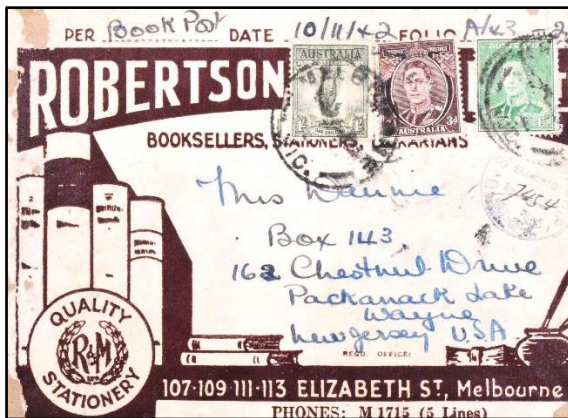 PER Book Post DATE 10/11/42 FOLIO A/43
ROBERTSON
AUSTRALIA
AUSTRALIA 3d
BOOKSELLERS, STATIONERS, LIBRARIANS
VIC.
Mrs
Box 143
162 Chestnut Drive
Packanack Lake
Wayne
New Jersey U.S.A
QUALITY
R&M
STATIONERY
REGD. OFFICE:
107-109-111-113 ELIZABETH ST, Melbourne
PHONES: M 1715 (5 Lines)